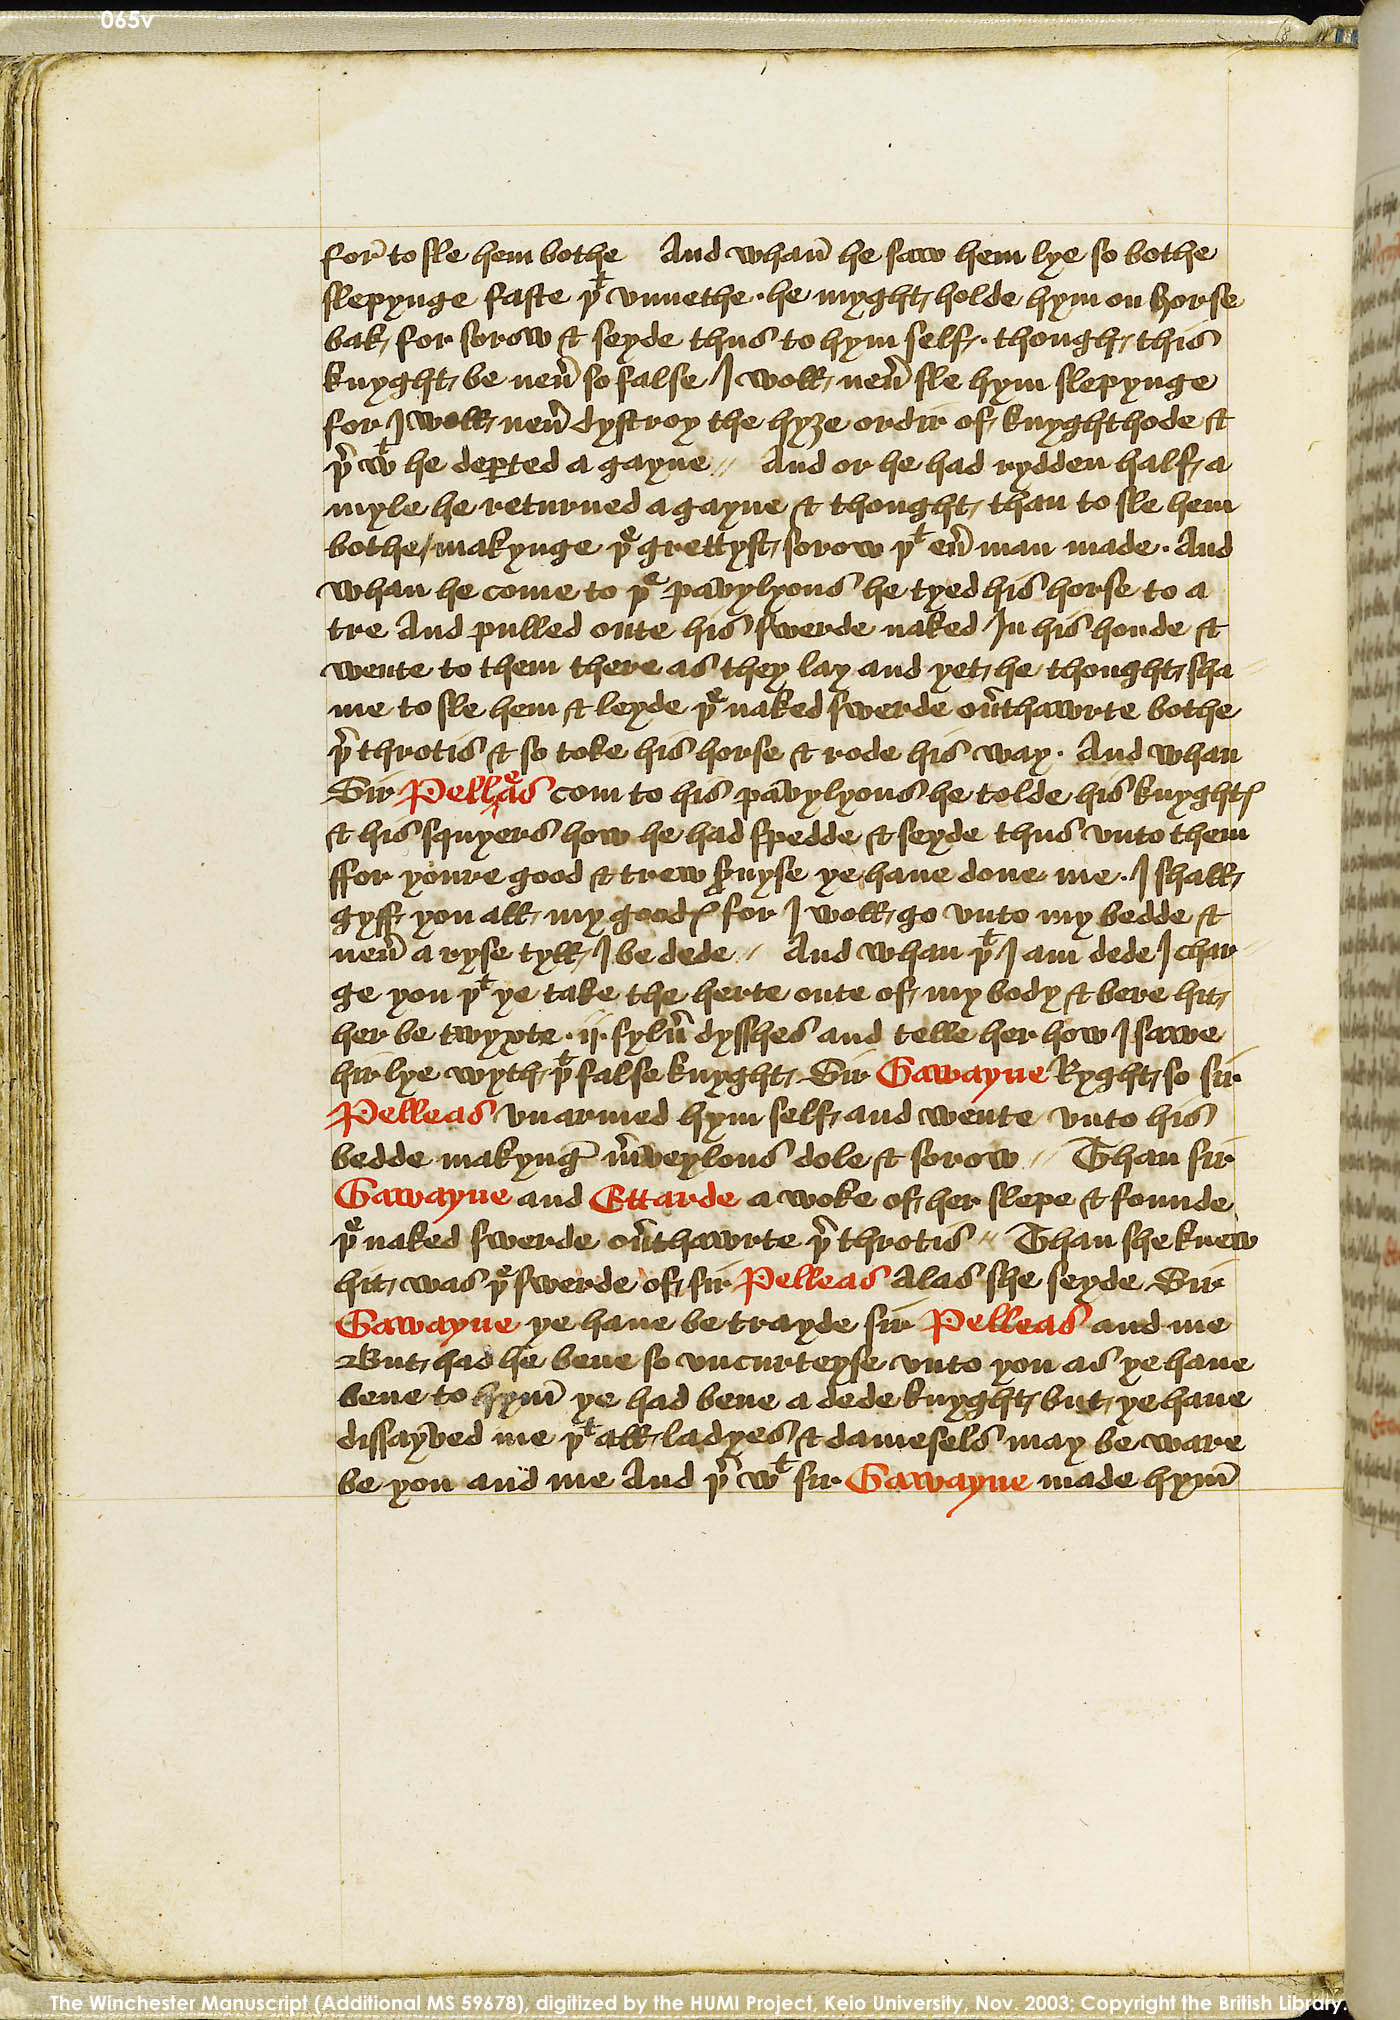 065v
for to sle hem bothe And whan̄ he saw hem lye so bothe
slepynge faste þᵗ vnnethe · he myght holde hym on horse
bak for sorow & seyde thus to hym self · though this
knyght be neu̅ so false I woll neu̅ sle hym slepynge
for I woll neu̅ dystroy the hyȝe ordir of knyghthode &
þ̅ wᵗ he deꝑted a gayne // And or he had rydden half a
myle he returned a gayne & thought than to sle hem
bothe / makynge þᵉ grettyst sorow þᵗ eu̅ man made · And
whan he come to þᵉ pavylyons he tyed his horse to a
tre And pulled oute his swerde naked In his honde &
wente to them there as they lay and yet he thought sha //
me to sle hem & leyde þᵉ naked swerde ou̅thawrte bothe
þ̅ throtis & so toke his horse & rode his way · And whan
Sir Pellᵉas com to his pavylyons he tolde his knyghtꝭ
& his squyers how he had spedde & seyde thus vnto them
ffor youre good & trew ẜuyse ye haue done me · I shall
gyff you all my goodꝭ for I woll go vnto my bedde &
neu̅ a ryse tyll I be dede // And whan þᵗ I am dede I char //
ge you þᵗ ye take the herte oute of my body & bere hit
her be twyxte · ij · sylu̅ dysshes and telle her how I sawe
hir lye wyth þᵗ false knyght Sir Gawayne Ryght so sir
Pelleas vnarmed hym self and wente vnto his
bedde makyng̅ m̅veylous dole & sorow // Than sir
Gawayne and Ettarde a woke of her slepe & founde
þᵉ naked swerde ou̅thawrte þ̅ throtis // Than she knew
hit was þᵉ swerde of sir Pelleas Alas she seyde Sir
Gawayne ye haue be trayde sir Pelleas and me
But had he bene so vncurteyse vnto you as ye haue
bene to hym̅ ye had bene a dede knyght but ye haue
dissayved me þᵗ all ladyes & damesels may be ware
be you and me And þ̅ wᵗ sir Gawayne made hym̅
The Winchester Manuscript (Additional MS 59678), digitized by the HUMI Project, Keio University, Nov. 2003; Copyright the British Library.